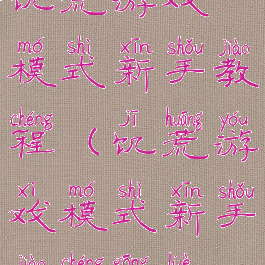 饥荒游戏
mó shì xīn shǒu jiào
模式新手教
chéng jī huāng yóu
程（饥荒游
xì mó shì xīn shǒu
戏模式新手
jiào chéng gōng lüè